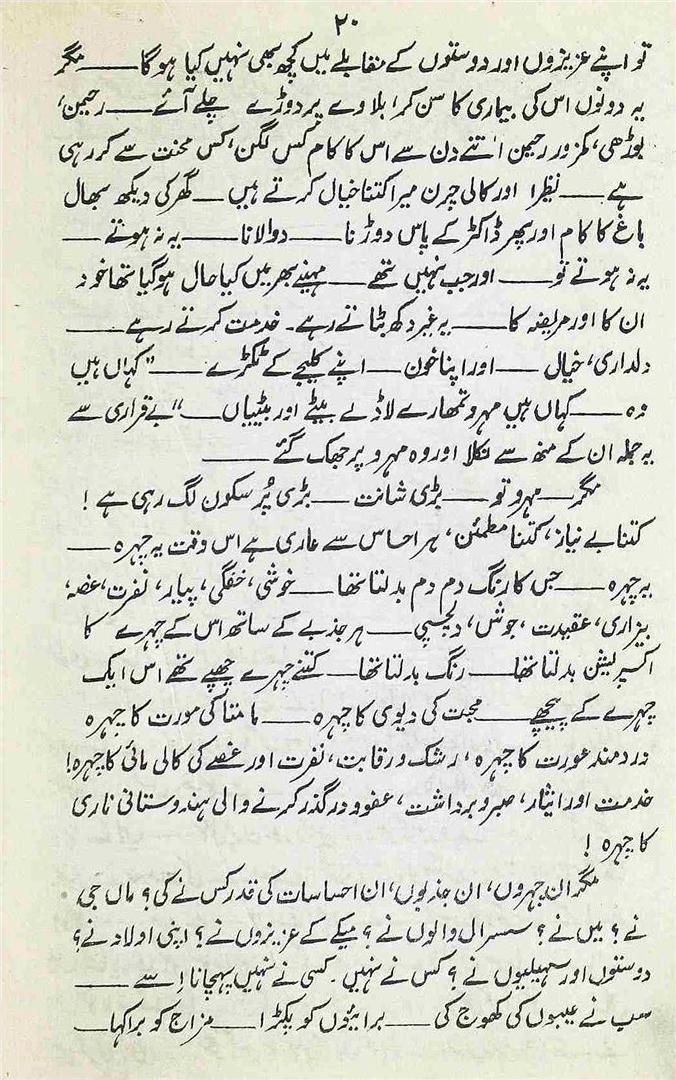 ۲۰
تو اپنے عزیزوں اور دوستوں کے مقابلے میں کچھ بھی نہیں کیا ہوگا——مگر
یہ دونوں اس کی بیماری کا سن کر، بلاوے پر دوڑے چلے آئے——رحیمن،
بوڑھی، کمزور رحیمن اتنے دن سے اس کا کام کس لگن، کس محنت سے کر رہی
ہے——نظرا اور کالی چرن میرا کتنا خیال کرتے ہیں——گھر کی دیکھ بھال
باغ کا کام اور پھر ڈاکٹر کے پاس دوڑنا——دوا لانا——یہ نہ ہوتے——
یہ نہ ہوتے تو——اور جب نہیں تھے——مہینے بھر میں کیا حال ہوگیا تھا خود
ان کا اور مریضہ کا——یہ غیر دکھ بٹاتے رہے۔ خدمت کرتے رہے——
دلداری، خیال——اور اپنا خون——اپنے کلیجے کے ٹکڑے——"کہاں ہیں
وہ——کہاں ہیں مہرو تمھارے لاڈلے بیٹے اور بیٹییاں——" بے قراری سے
یہ جملہ ان کے منھ سے نکلا اور وہ مہرو پر جھک گئے——
مگر——مہرو تو——بڑی شانت——بڑی پُر سکون لگ رہی ہے!
کتنا بے نیاز، کتنا مطمئن، ہر احساس سے عاری ہے اس وقت یہ چہرہ——
یہ چہرہ——جس کا رنگ دم دم بدلتا تھا——خوشی، خفگی، پیار، نفرت، غصہ،
بیزاری، عقیدت، جوش، دلچسپی——ہر جذبے کے ساتھ اس کے چہرے کا
اکسپریشن بدلتا تھا——رنگ بدلتا تھا——کتنے چہرے چھپے تھے اس ایک
چہرے کے پیچھے——محبت کی دیوی کا چہرہ——مامتا کی مورت کا چہرہ
دردمند عورت کا چہرہ، رشک و رقابت، نفرت اور غصے کی کالی مائی کا چہرہ!
خدمت اور ایثار، صبر و برداشت، عفو و درگذر کرنے والی ہندوستانی ناری
کا چہرہ!
مگر ان چہروں، ان جذبوں، ان احساسات کی قدر کس نے کی؟ ماں جی
نے؟ میں نے؟ سسرال والوں نے؟ میکے کے عزیزوں نے؟ اپنی اولاد نے؟
دوستوں اور سہیلیوں نے؟ کس نے نہیں۔ کسی نے نہیں پہچانا اسے——
سب نے عیبوں کی کھوج کی——برائیوں کو پکڑا——مزاج کو برا کہا——